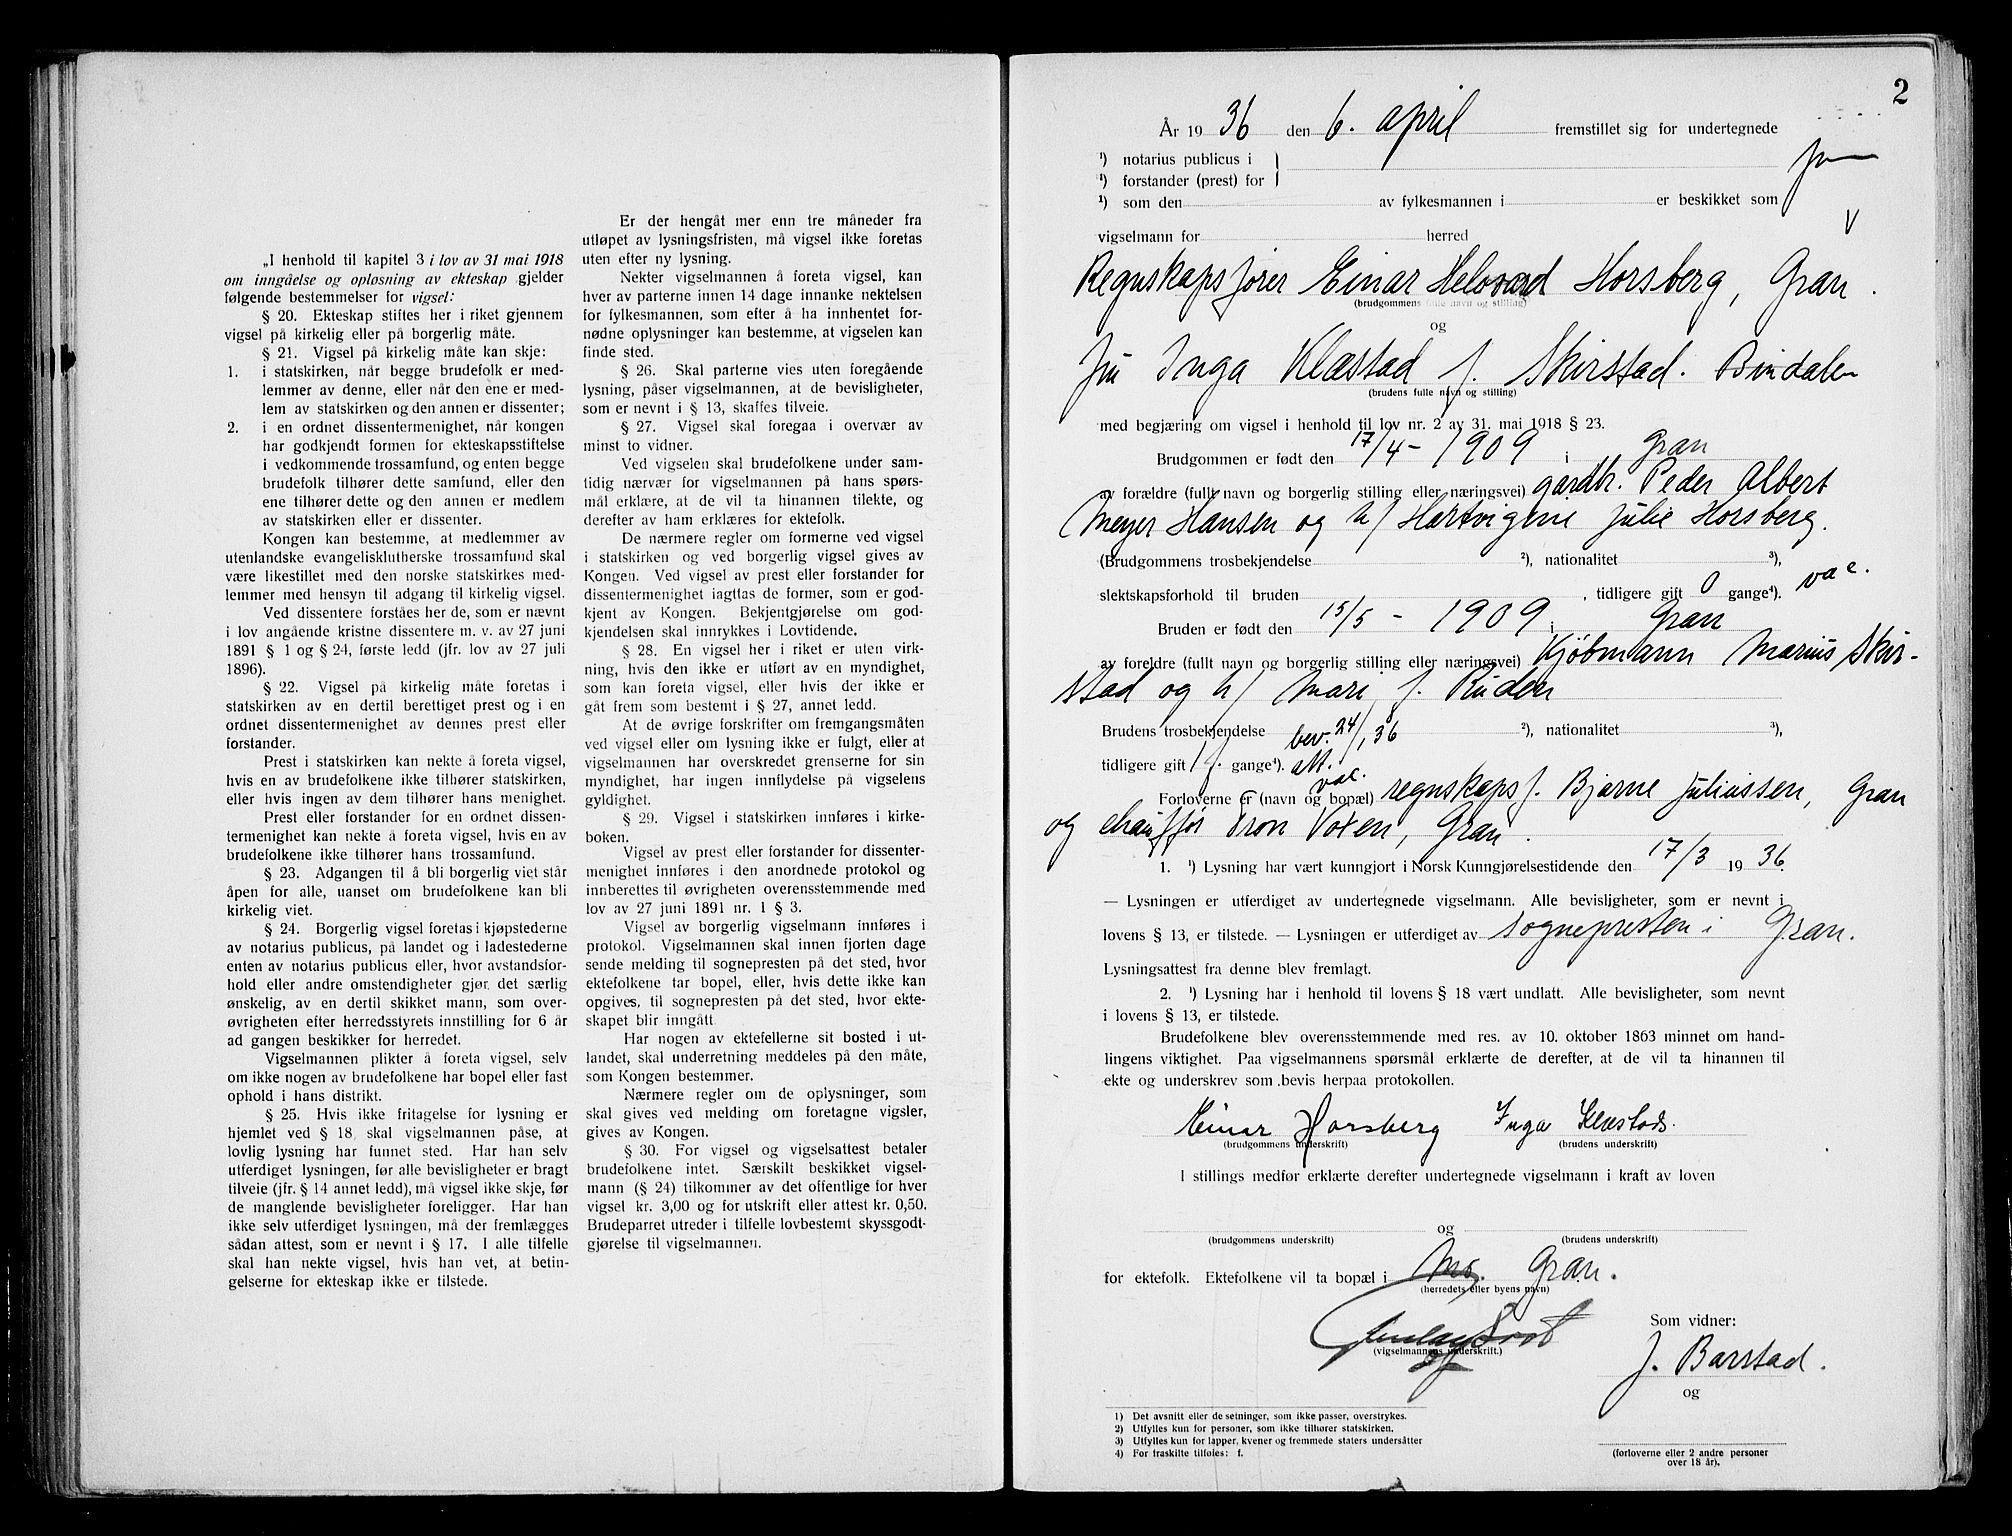 „I henhold til kapitel 3 i lov av 31 mai 1918
om inngåelse og opløsning av ekteskap gjelder
følgende bestemmelser for vigsel:
§ 20. Ekteskap stiftes her i riket gjennem
vigsel på kirkelig eller på borgerlig måte.
§ 21. Vigsel på kirkelig måte kan skje:
1. i statskirken, når begge brudefolk er med-
lemmer av denne, eller når den ene er med-
lem av statskirken og den annen er dissenter;
2. i en ordnet dissentermenighet, når kongen
har godkjendt formen for ekteskapsstiftelse
i vedkommende trossamfund, og enten begge
brudefolk tilhører dette samfund, eller den
ene tilhører dette og den annen er medlem
av statskirken eller er dissenter.
Kongen kan bestemme, at medlemmer av
utenlandske evangeliskluterske trossamfund skal
være likestillet med den norske statskirkes med-
lemmer med hensyn til adgang til kirkelig vigsel.
Ved dissentere forståes her de, som er nævnt
i lov angående kristne dissentere m. v. av 27 juni
1891 § 1 og § 24, første ledd (jfr. lov av 27 juli
1896).
§ 22. Vigsel på kirkelig måte foretas i
statskirken av en dertil berettiget prest og i en
ordnet dissentermenighet av dennes prest eller
forstander.
Prest i statskirken kan nekte å foreta vigsel,
hvis en av brudefolkene ikke tilhører statskirken,
eller hvis ingen av dem tilhører hans menighet.
Prest eller forstander for en ordnet dissen-
termenighet kan nekte å foreta vigsel, hvis en av
brudefolkene ikke tilhører hans trossamfund.
§ 23. Adgangen til å bli borgerlig viet står
åpen for alle, uanset om brudefolkene kan bli
kirkelig viet.
§ 24. Borgerlig vigsel foretas i kjøpstederne
av notarius publicus, på landet og i ladestederne
enten av notarius publicus eller, hvor avstandsfor-
hold eller andre omstendigheter gjør det særlig
ønskelig, av en dertil skikket mann, som over-
øvrigheten efter herredsstyrets innstilling for 6 år
ad gangen beskikker for herredet.
Vigselmannen plikter å foreta vigsel, selv
om ikke nogen av brudefolkene har bopel eller fast
ophold i hans distrikt.
§ 25. Hvis ikke fritagelse for lysning er
hjemlet ved § 18, skal vigselmannen påse, at
lovlig lysning har funnet sted. Har han selv
utferdiget lysningen, før alle bevisligheter er bragt
tilveie (jfr. § 14 annet ledd), må vigsel ikke skje, før
de manglende bevisligheter foreligger. Har han
ikke selv utferdiget lysningen, må der fremlægges
sådan attest, som er nevnt i § 17. I alle tilfelle
skal han nekte vigsel, hvis han vet, at betin-
gelserne for ekteskap ikke er tilstede.
Er der hengåt mer enn tre måneder fra
utløpet av lysningsfristen, må vigsel ikke foretas
uten efter ny lysning.
Nekter vigselmannen å foreta vigsel, kan
hver av parterne innen 14 dage innanke nektelsen
for fylkesmannen, som efter å ha innhentet for-
nødne oplysninger kan bestemme, at vigselen kan
finde sted.
§ 26. Skal parterne vies uten foregående
lysning, påser vigselmannen, at de bevisligheter,
som er nevnt i § 13, skaffes tilveie.
§ 27. Vigsel skal foregaa i overvær av
minst to vidner.
Ved vigselen skal brudefolkene under sam-
tidig nærvær for vigselmannen på hans spørs-
mål erklære, at de vil ta hinannen tilekte, og
derefter av ham erklæres for ektefolk.
De nærmere regler om formerne ved vigsel
i statskirken og ved borgerlig vigsel gives av
Kongen. Ved vigsel av prest eller forstander for
dissentermenighet iagttas de former, som er god-
kjent av Kongen. Bekjentgjørelse om god-
kjendelsen skal innrykkes i Lovtidende.
§ 28. En vigsel her i riket er uten virk-
ning, hvis den ikke er utført av en myndighet,
som kan foreta vigsel, eller hvis der ikke er
gåt frem som bestemt i § 27, annet ledd.
At de øvrige forskrifter om fremgangsmåten
ved vigsel eller om lysning ikke er fulgt, eller at
vigselmannen har overskredet grenserne for sin
myndighet, har ingen innflydelse på vigselens
gyldighet.
§ 29. Vigsel i statskirken innføres i kirke-
boken.
Vigsel av prest eller forstander for dissenter-
menighet innføres i den anordnede protokol og
innberettes til øvrigheten overensstemmende med
lov av 27 juni 1891 nr. 1 § 3.
Vigsel av borgerlig vigselmann innføres i
protokol. Vigselmannen skal innen fjorten dage
sende melding til sognepresten på det sted, hvor
ektefolkene tar bopel, eller, hvis dette ikke kan
opgives, til sognepresten på det sted, hvor ekte-
skapet blir inngått.
Har nogen av ektefellerne sit bosted i ut-
landet, skal underretning meddeles på den måte,
som Kongen bestemmer.
Nærmere regler om de oplysninger, som
skal gives ved melding om foretagne vigsler,
gives av Kongen.
§ 30. For vigsel og vigselsattest betaler
brudefolkene intet. Særskilt beskikket vigsel-
mann (§ 24) tilkommer av det offentlige for hver
vigsel kr. 3,00 og for utskrift eller attest kr. 0,50.
Brudeparret utreder i tilfelle lovbestemt skyssgodt-
gjørelse til vigselmannen.
2
År 1936 den 6. april fremstillet sig for undertegnede
¹) notarius publicus i
¹) forstander (prest) for
¹) som den av fylkesmannen i er beskikket som
vigselmann for herred
Regnskapsfører Einar Helvard Horsberg, Gran.
(brudgommens fulle navn og stilling)
og
fru Inga Klæstad f. Skirstad. Brudalen
(brudens fulle navn og stilling)
med begjæring om vigsel i henhold til lov nr. 2 av 31. mai 1918 § 23.
Brudgommen er født den 17/4 - 1909 i Gran
av forældre (fullt navn og borgerlig stilling eller næringsvei) gårdbr. Peder Albert
Meyer Hansen og h/ Hartvigine Julie Horsberg.
(Brudgommens trosbekjendelse ²), nationalitet ³),
slektskapsforhold til bruden , tidligere gift 0 gange⁴). vac.
Bruden er født den 15/5 - 1909 i Gran
av foreldre (fullt navn og borgerlig stilling eller næringsvei) Kjøbmann Marius Skir-
stad og h/ Mari f. Ruden
Brudens trosbekjendelse bev. 24/1 36 ²), nationalitet ³),
tidligere gift 1 f. gange⁴). att. vac.
Forloverne er (navn og bopæl) regnskapsf. Bjarne Juliussen, Gran
og chauffør Tron Voxen, Gran.
1. ¹) Lysning har vært kunngjort i Norsk Kunngjørelsestidende den 17/3 1936.
— Lysningen er utferdiget av undertegnede vigselmann. Alle bevisligheter, som er nevnt i
lovens § 13, er tilstede. — Lysningen er utferdiget av sognepresten i Gran.
Lysningsattest fra denne blev fremlagt.
2. ¹) Lysning har i henhold til lovens § 18 vært undlatt. Alle bevisligheter, som nevnt
i lovens § 13, er tilstede.
Brudefolkene blev overensstemmende med res. av 10. oktober 1863 minnet om hand-
lingens viktighet. Paa vigselmannens spørsmål erklærte de derefter, at de vil ta hinannen til
ekte og underskrev som bevis herpaa protokollen.
Einar Horsberg Inga Klæstad.
(brudgommens underskrift) (brudens underskrift)
I stillings medfør erklærte derefter undertegnede vigselmann i kraft av loven
og
(brudgommens underskrift) (brudens underskrift)
for ektefolk. Ektefolkene vil ta bopæl i Gran.
(herredets eller byens navn)
Som vidner:
(vigselmannens underskrift.)
J. Barstad.
og
1) Det avsnitt eller de setninger, som ikke passer, overstrykes.
2) Utfylles kun for personer, som ikke tilhører statskirken.
3) Utfylles kun for lapper, kvener og fremmede staters undersåtter
4) For fraskilte tilføies: f.
(forloverne eller 2 andre personer
over 18 år).